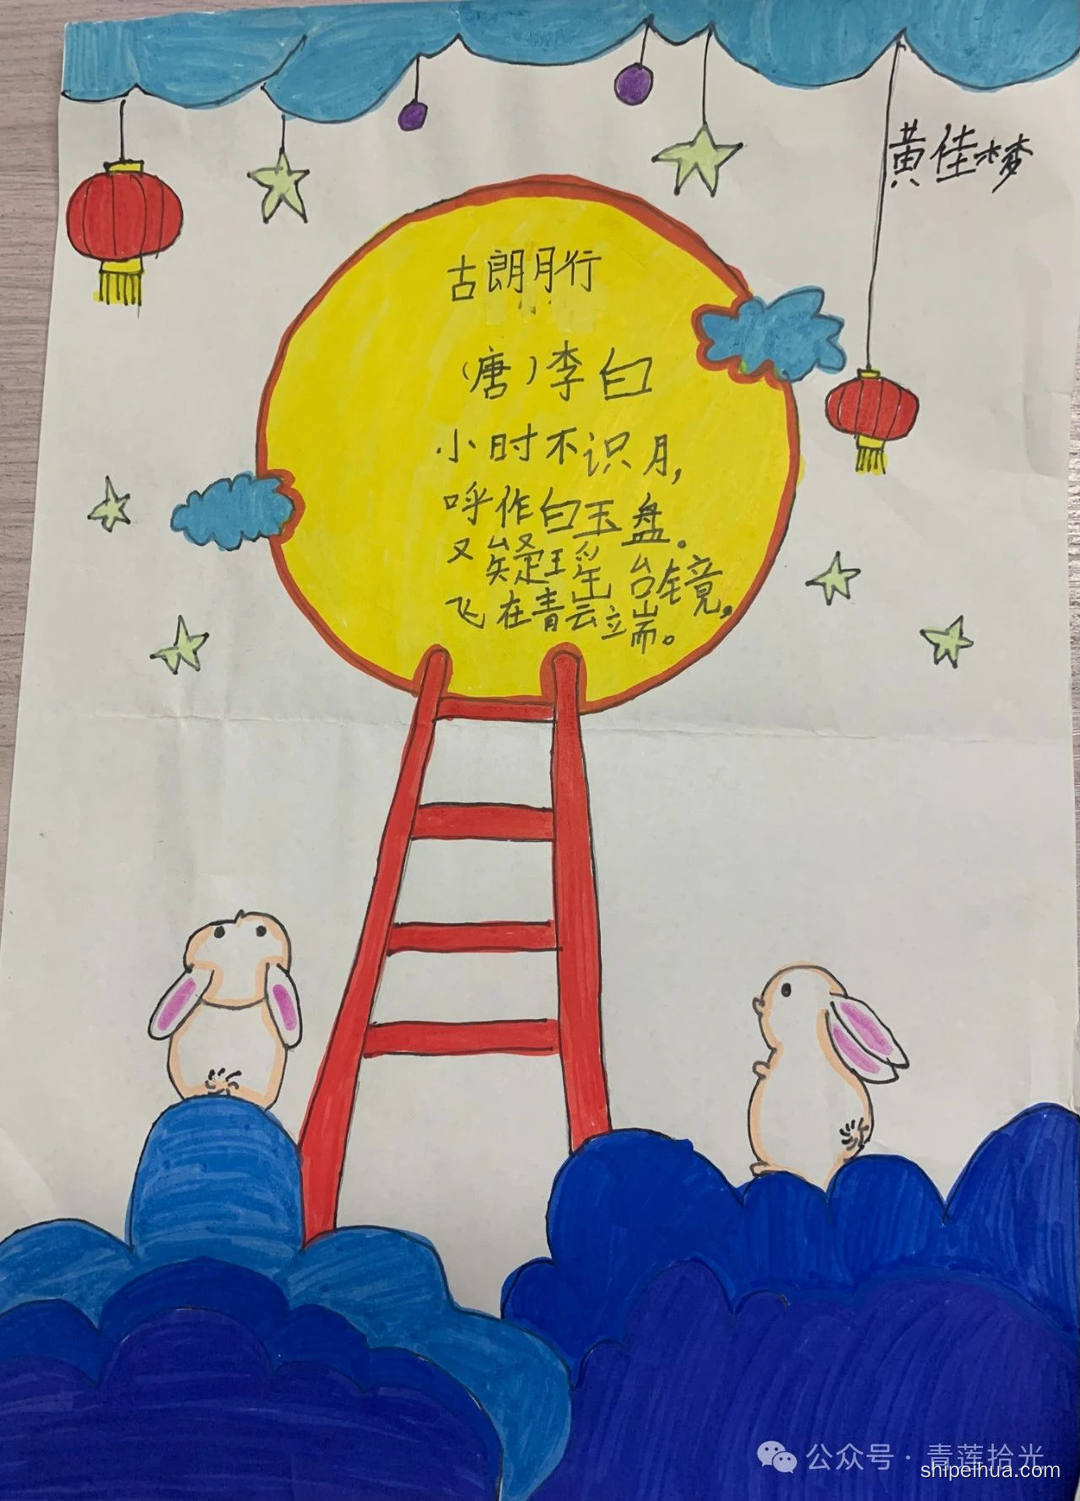 黄佳梦
古朗月行
（唐）李白
小时不识月，
呼作白玉盘。
又疑瑶台镜，
飞在青云立端。
公众号·青莲拾光
shipeihua.com